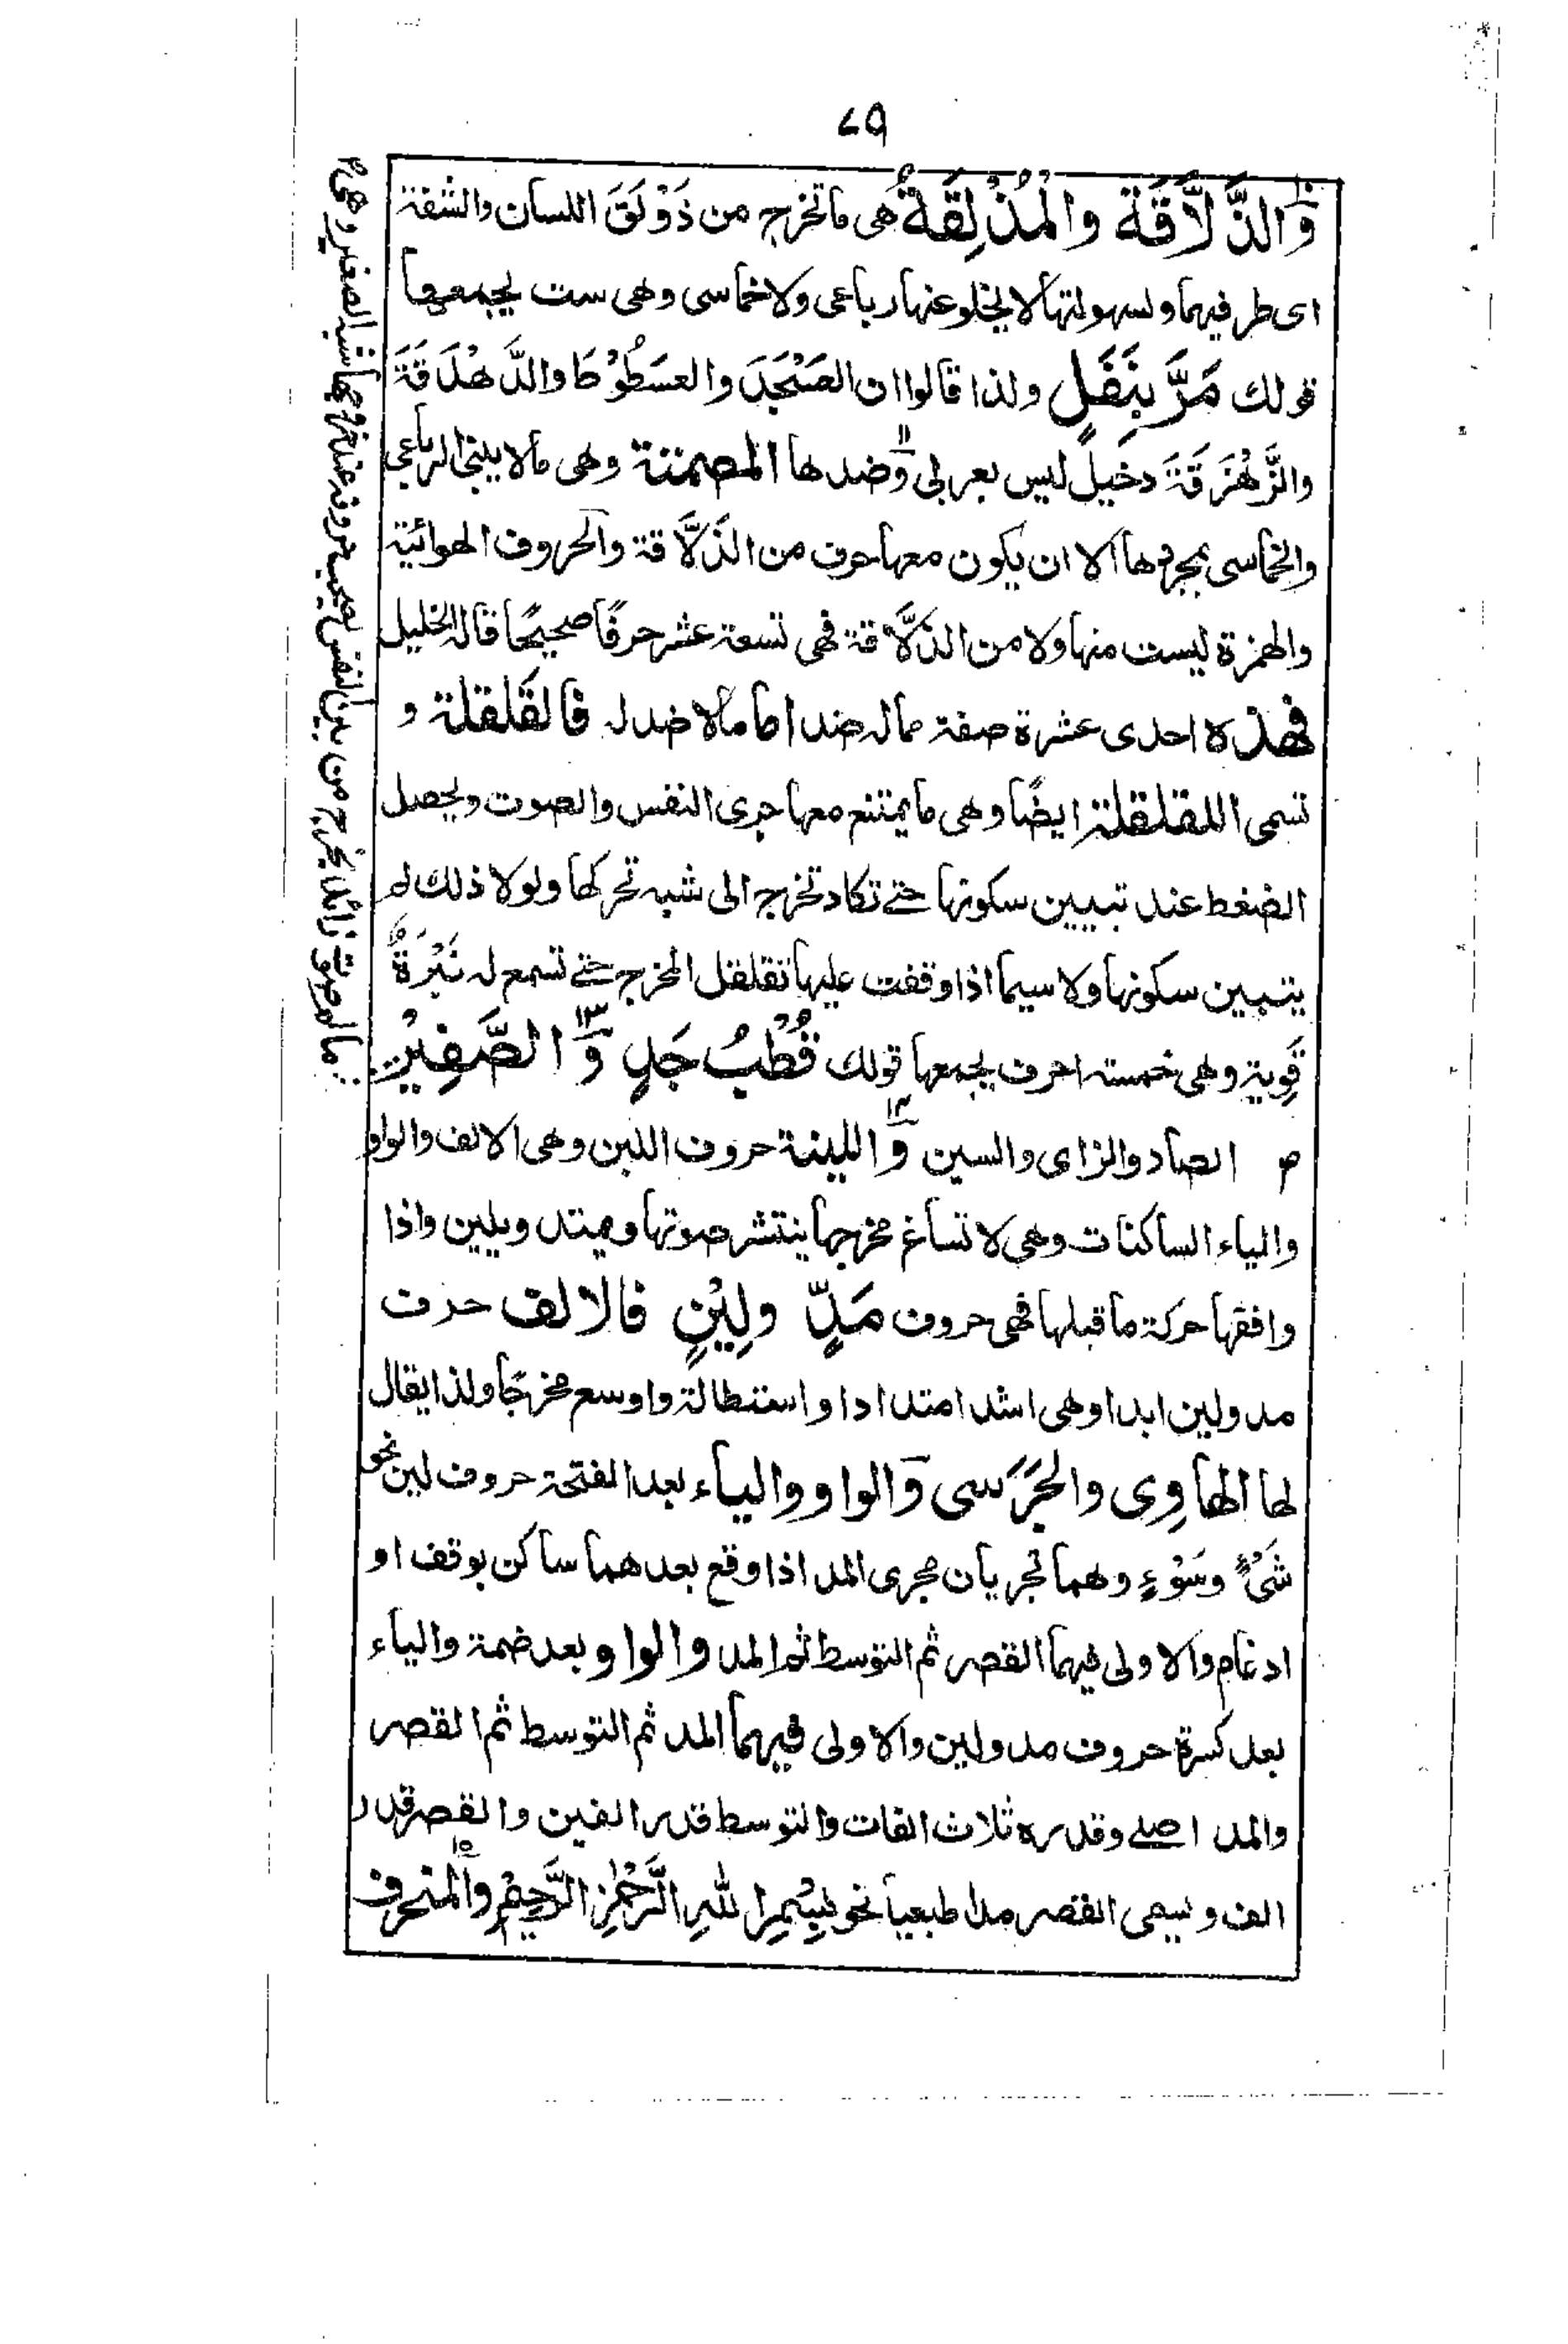 ۷۹
وَالذَّلَّاقَة والْمُذْلِقَةُ هى ماتخرج من ذَوْلَقَ اللسان والشفة
اى طرفيهما ولسهولتها لا يخلو عنها رباعى ولا خماسى وهى ست يجمعها
قولك مَرَّ بِنَفَلٍ ولذا قالوا ان العَسْجَدَ والعسَطُوْطَا والدَّهْدَقَةَ
والزَّهْزَقَةَ دخيل ليس بعربى ۱۱ وَضدها المصمتة وهى مالا يبنى الرباعى
والخماسى بمجردها الا ان يكون معها حرف من الذَلَّاقة والحروف الهوائية
والهمزة ليست منها ولا من الذَلَّاقة فهى تسعة عشر حرفًا صحيحًا قاله الخليل
فهذه احدى عشرة صفة مماله ضد اما مالا ضد له فالقَلقلة و
تسمى اللقلقلة ايضًا وهى ما يمتنع معها جرى النفس والصوت ويحصل
الضغط عند تبيين سكونها حتے تكاد تخرج الى شبه تحركها ولولا ذلك لم
يتبين سكونها ولا سيما اذا وقفت عليها تقلقل المخرج حتے تسمع له نَبْرَةٌ
قَوِية وهى خمسة احرف يجمعها قولك قُطْبُ جَدٍ ۱۳ وَالصَّفِيْرُ
م الصاد والزاى والسين ۱۴ وَاللينة حروف اللين وهى الالف والواو
والياء الساكنات وهى لا تساغ مخرجها ينتشر صوتها ويمتد ويلين واذا
وافقها حركة ما قبلها فهى حروف مَدٍّ ولِيْنٍ فالالف حرف
مد ولين ابدا وهى اشد امتدادا واستطالة واوسع مخرجًا ولذا يقال
لها الهاوِى والجَرَسى وَالواو والياء بعد الفتحة حروف لين نحو
شَىْءٍ وسَوْءٍ وهما تجريان مجرى المد اذا وقع بعدهما ساكن بوقف او
ادغام والاولى فيهما القصر ثم التوسط ثم المد والواو بعد ضمة والياء
بعد كسرة حروف مد ولين والاولى فيهما المد ثم التوسط ثم القصر
والمد اصلے وقدره ثلاث الفات والتوسط قدر الفين والقصر قدر
الف ويسمى القصر مدا طبعيا نحو بِسْمِ اللهِ الرَّحْمٰنِ الرَّحِيْمِ ۱۵ والمنحرف
ما له صوت زائد يخرج من بين النفس يصحب حروفه عند خروجها شبه الصفير وهى م